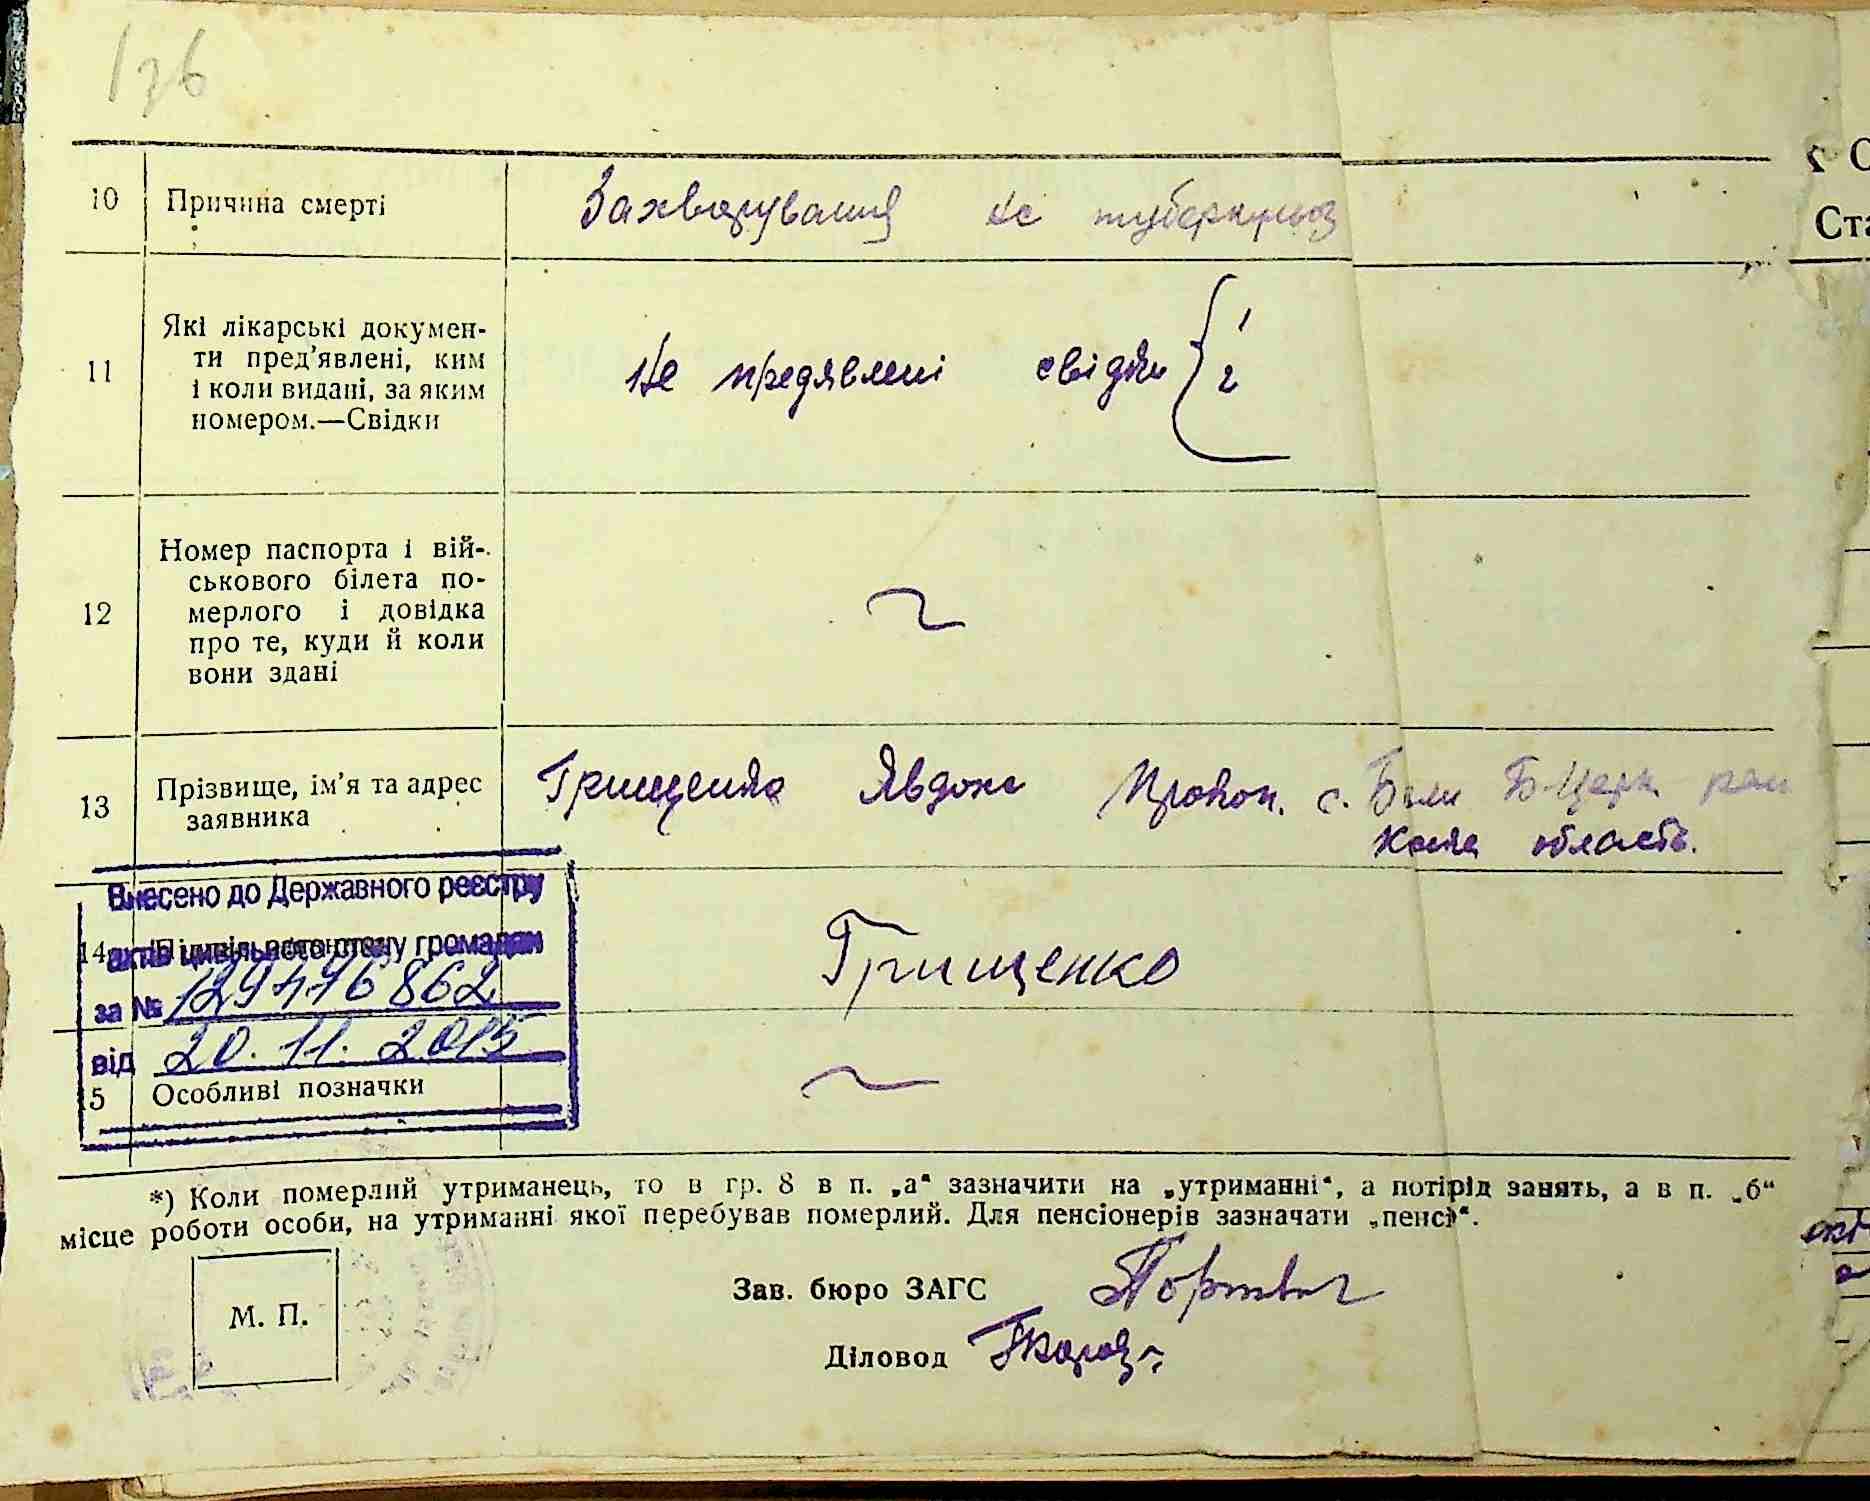 10 Причина смерті Захворування на туберкульоз
11 Які лікарські докумен-
ти пред’явлені, ким
і коли видані, за яким
номером.—Свідки
Не предявлені свідки { 1
2
12 Номер паспорта і вій-
ськового білета по-
мерлого і довідка
про те, куди й коли
вони здані
13 Прізвище, ім’я та адрес
заявника
Грищенко Явдоха Прокоп. с. Б-Церк. рай
область.
Внесено до Державного реєстру
14
актів цивільного стану громадян
Грищенко
за № 129476862
від 20. 11. 2015
15 Особливі позначки
*) Коли померлий утриманець, то в гр. 8 в п. „а“ зазначити на „утриманні“, а потірід занять, а в п. „б“
місце роботи особи, на утриманні якої перебував померлий. Для пенсіонерів зазначати „пенсі“.
Зав. бюро ЗАГС
М. П.
Діловод
Ста